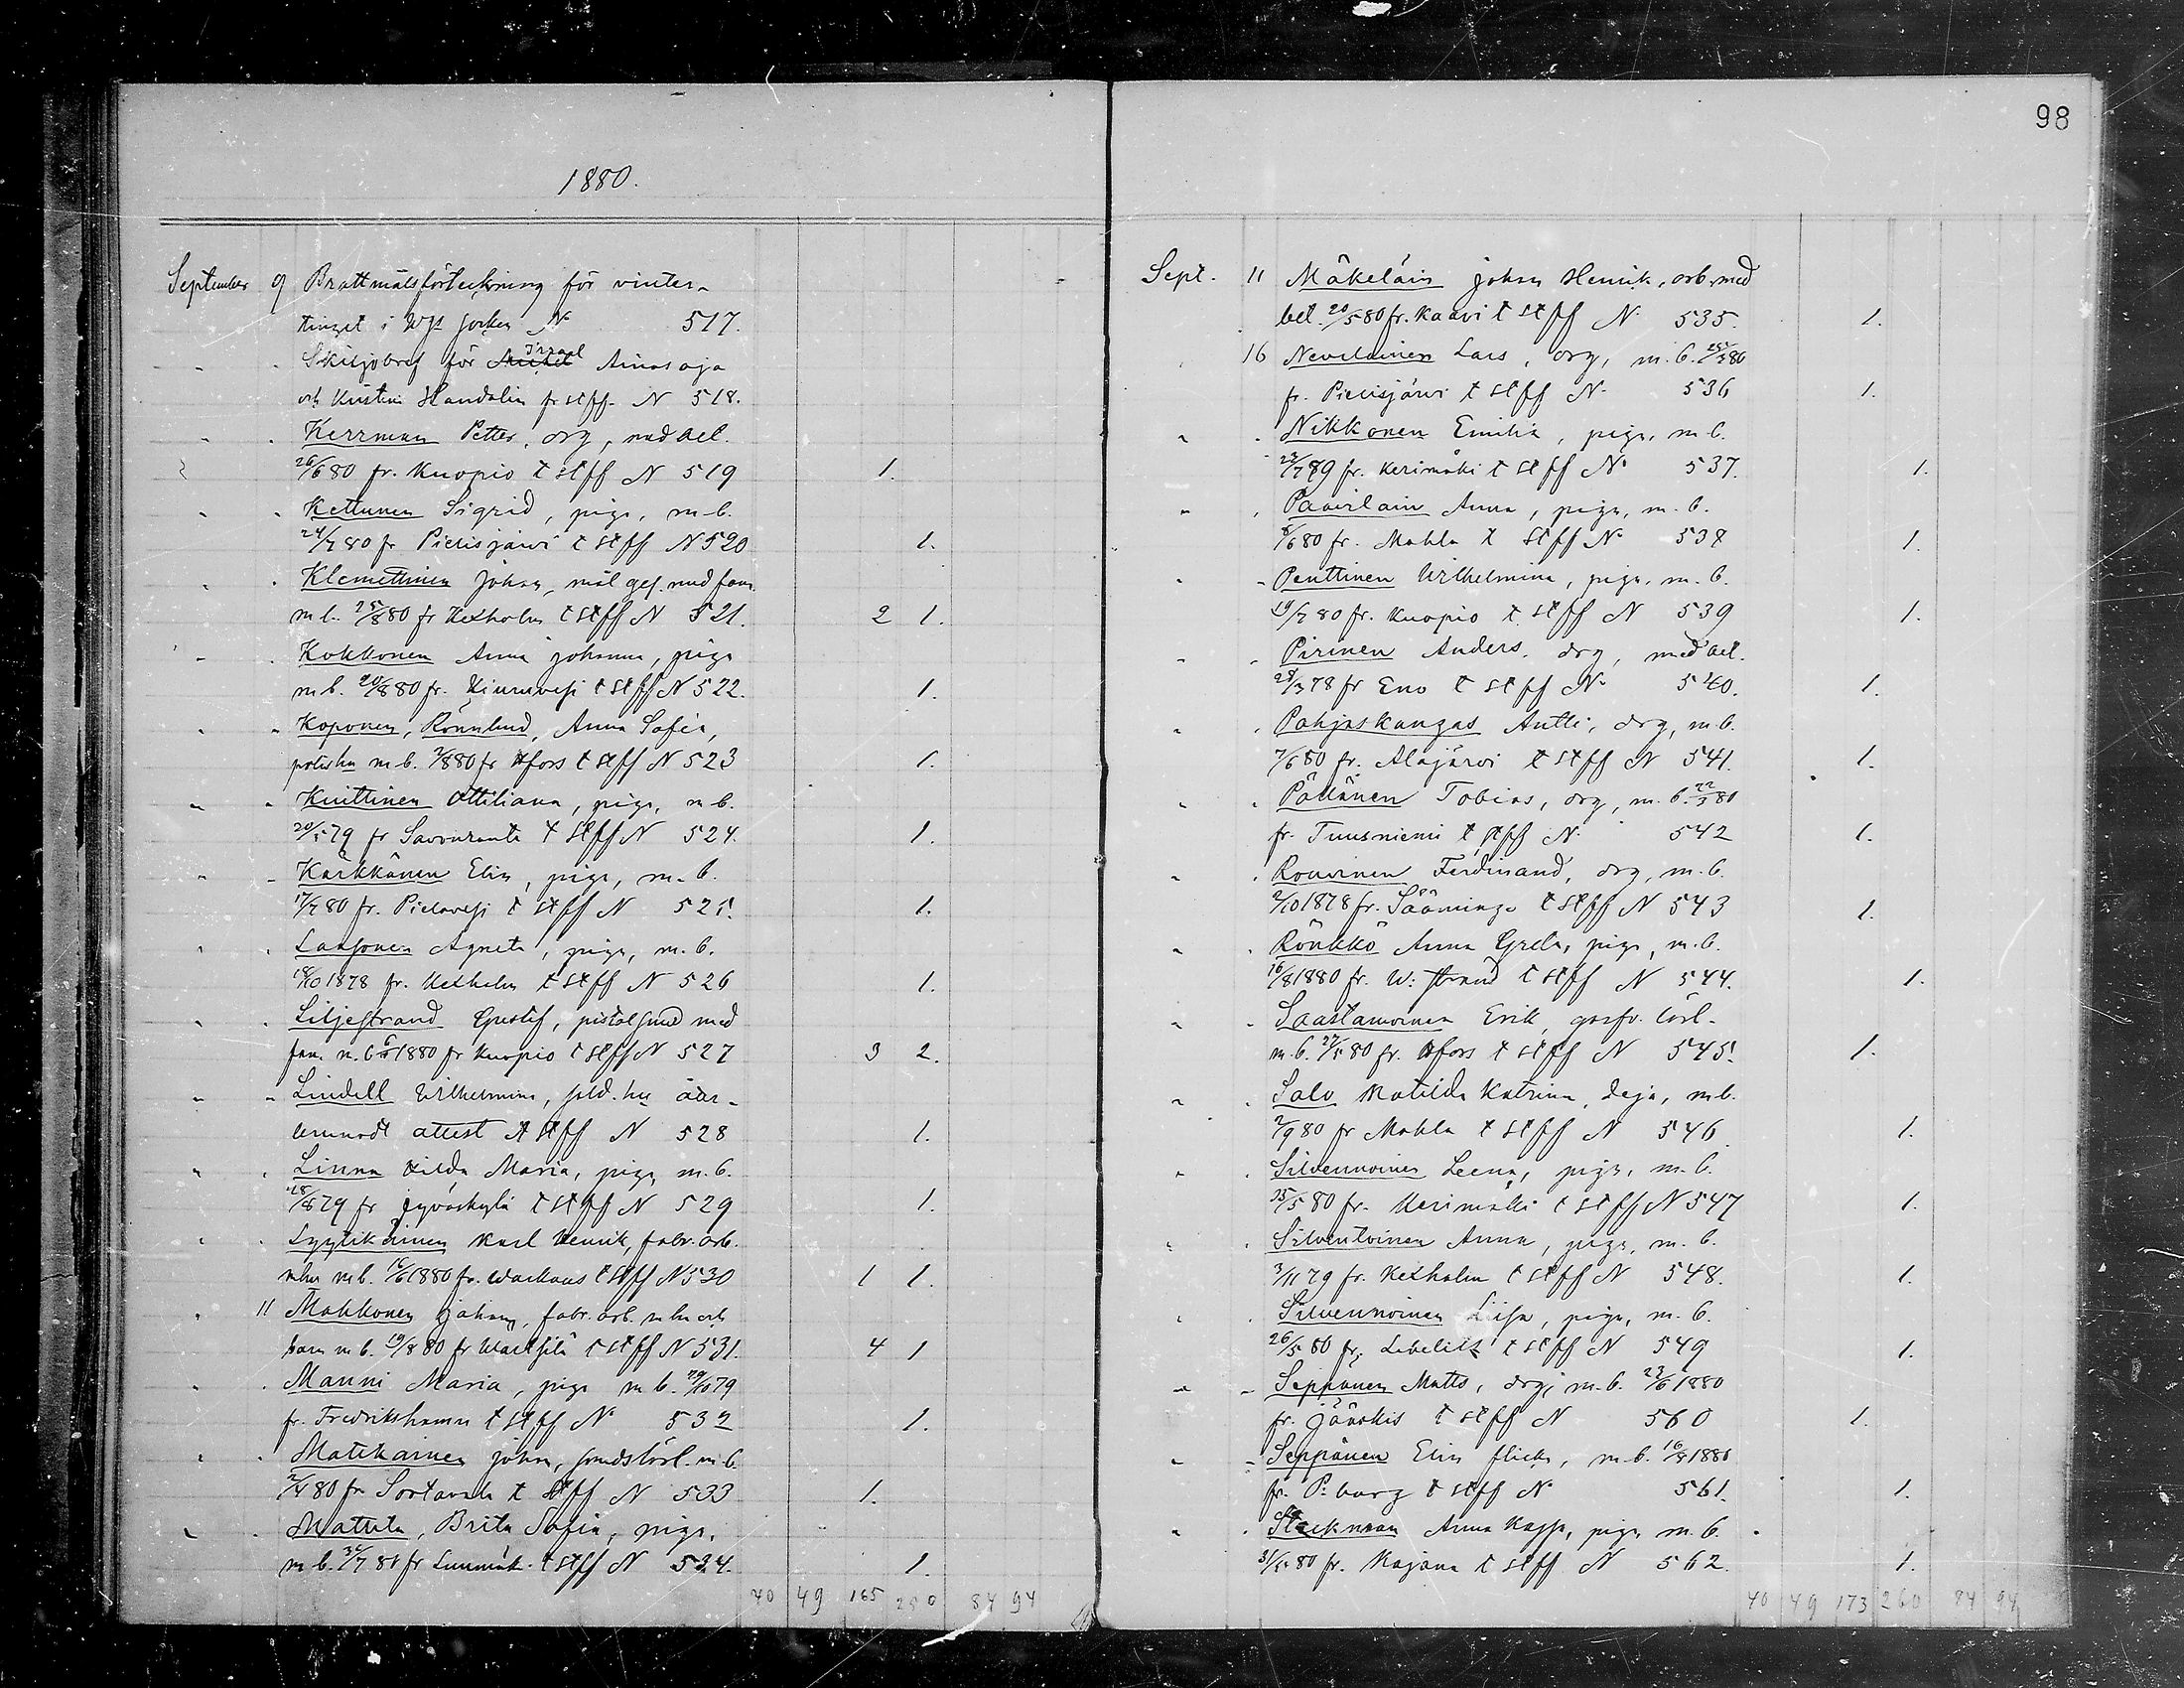 98
1880.
September 9 Brottmålsförteckning för vinter-
tinget i Wst Jockas N 517.
" " Skiljobref för Israel Ainasoja
och Kristin Handolin fr stff N 518.
" " Kerrman Petter, drg, med bet.
26/6 80 fr. Kuopio t stff N 519 1.
" " Kettunen Sigrid, piga, m b.
24/7 80 fr Pielisjärvi t stff N 520 1.
" " Klemettinen Johan, mål. ges. med fam
m b. 25/8 80 fr Kexholm t stff N 521. 2 1.
" " Kokkonen Anna Johanna, piga
m b. 20/8 80 fr. Kiuruvesi t stff N 522. 1.
" " Koponen, Rönnlund, Anna Sofia,
m b. 2/8 80 fr Hfors t stff N 523 1.
" " Knittinen Ottiliana, piga, m b.
20/5 79 fr Savonranta t stff N 524. 1.
" " Kärkkänen Elin, piga, m. b.
17/7 80 fr. Pielavesi t stff N 525. 1.
" " Laasonen Agneta, piga, m. b.
18/10 1878 fr. Kexholm t stff N 526 1.
" " Liljestrand Gustaf, pistolsmed med
fam. m. b 6/8 1880 fr Kuopio t stff N 527 3 2.
" " Lindell Wilhelmina, sold. hu åter-
lemnadt attest t stff N 528 1.
" " Linna Hilda Maria, piga, m. b.
28/8 79 fr Jyväskylä t stff N 529 1.
" " Lyytikäinen Karl Henrik, fabr. arb.
m hu m b. 16/6 1880 fr. Warkaus t stff N 530 1 1.
" 11 Makkonen Johan, fabr. arb. m hu och
barn m b. 19/8 80 fr Wärtsilä t stff N 531. 4 1
" " Manni Maria, piga m b. 29/10 79
fr. Fredrikshamn t stff N 532 1.
" " Matikainen Johan, m b.
80 fr Sortavala t stff N 533 1.
" " Mattila, Brita Sofia, piga,
m b. fr Lumiväk. t stff N 534. 1.
40 49 165 84 94
Sept. 11 Mäkeläin Johan Henrik, arb, med
bet. 20/5 80 fr. Kaavi t stff N 535. 1.
16 Nevalainen Lars, drg, m. b.
fr. Pielisjärvi t stff N 536 1.
" " Nikkonen Emilia, piga, m b.
fr. Kerimäki t stff N 537. 1.
" " Paavilain Anna, piga, m. b.
/6 80 fr. Mohla t stff N 538 1.
" " Penttinen Wilhelmina, piga, m. b.
19/7 80 fr. Kuopio t stff N 539 1.
" " Pirinen Anders, drg, med bet.
28/3 78 fr Eno t stff N 540. 1.
" " Pohjaskangas Antti, drg, m b.
7/6 80 fr. Alajärvi t stff N 541. 1.
" " Pöllänen Tobias, drg, m. b. 22/3 80
fr. Tuusniemi t stff N 542 1.
" " Rouvinen Ferdinand, drg, m. b.
2/10 1878 fr. Sääminge t stff N 543 1.
" " Rönkkö Anna Greta, piga, m. b.
16/8 1880 fr. W: strand t stff N 544. 1.
" " Saastamoinen Erik, gasfv. lärl.
m. b. 27/5 80 fr. Hfors t stff N 545. 1.
" " Salo Matilda Katrina, deja, m b.
2/9 80 fr Mohla t stff N 546. 1.
" " Silvennoinen Leena, piga, m. b.
25/5 80 fr. Kerimäki t stff N 547 1.
" " Silventoinen Anna, piga, m. b.
3/11 79 fr. Kexholm t stff N 548. 1.
" " Silvennoinen Liisa, piga, m. b.
26/5 80 fr. Libelits t stff N 549 1.
" " Seppänen Matts, drg, m. b. 23/6 1880
fr. Jääskis t stff N 560 1.
" " Seppänen Elin flicka, m. b. 1880
fr. P:burg t stff N 561. 1.
" " Stockman Anna Kajsa, piga, m. b.
80 fr. Kajana t stff N 562. 1.
40 49 173 260 84 94